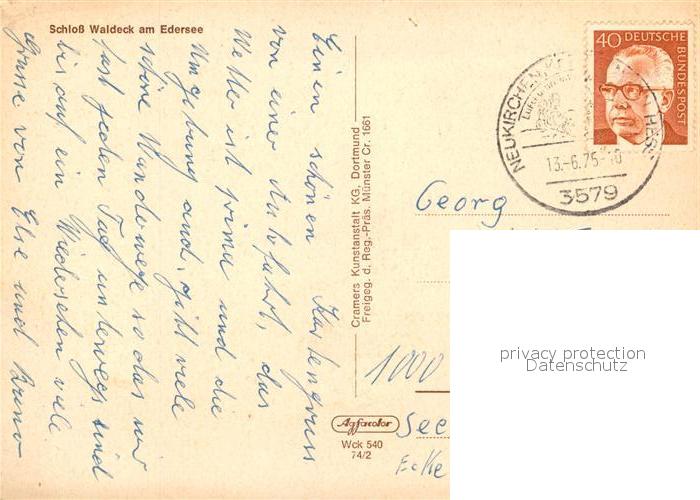 Schloß Waldeck am Edersee
Einen schönen Kartengruss
von einer Autofahrt, das
Wetter ist prima und die
Umgebung auch, gibt viele
schöne Wanderwege so das wir
fast jeden Tag unterwegs sind
bis auf ein Wiedersehen viele
Grüsse von Else und Bruno
Cramers Kunstanstalt KG, Dortmund
Freigeg. d. Reg.-Präs. Münster Cr. 1661
40 DEUTSCHE BUNDESPOST
NEUKIRCHEN
HESS
13.-6.75-10
3579
Georg
1000
See
Ecke
Agfacolor
Wck 540
74/2
privacy protection
Datenschutz